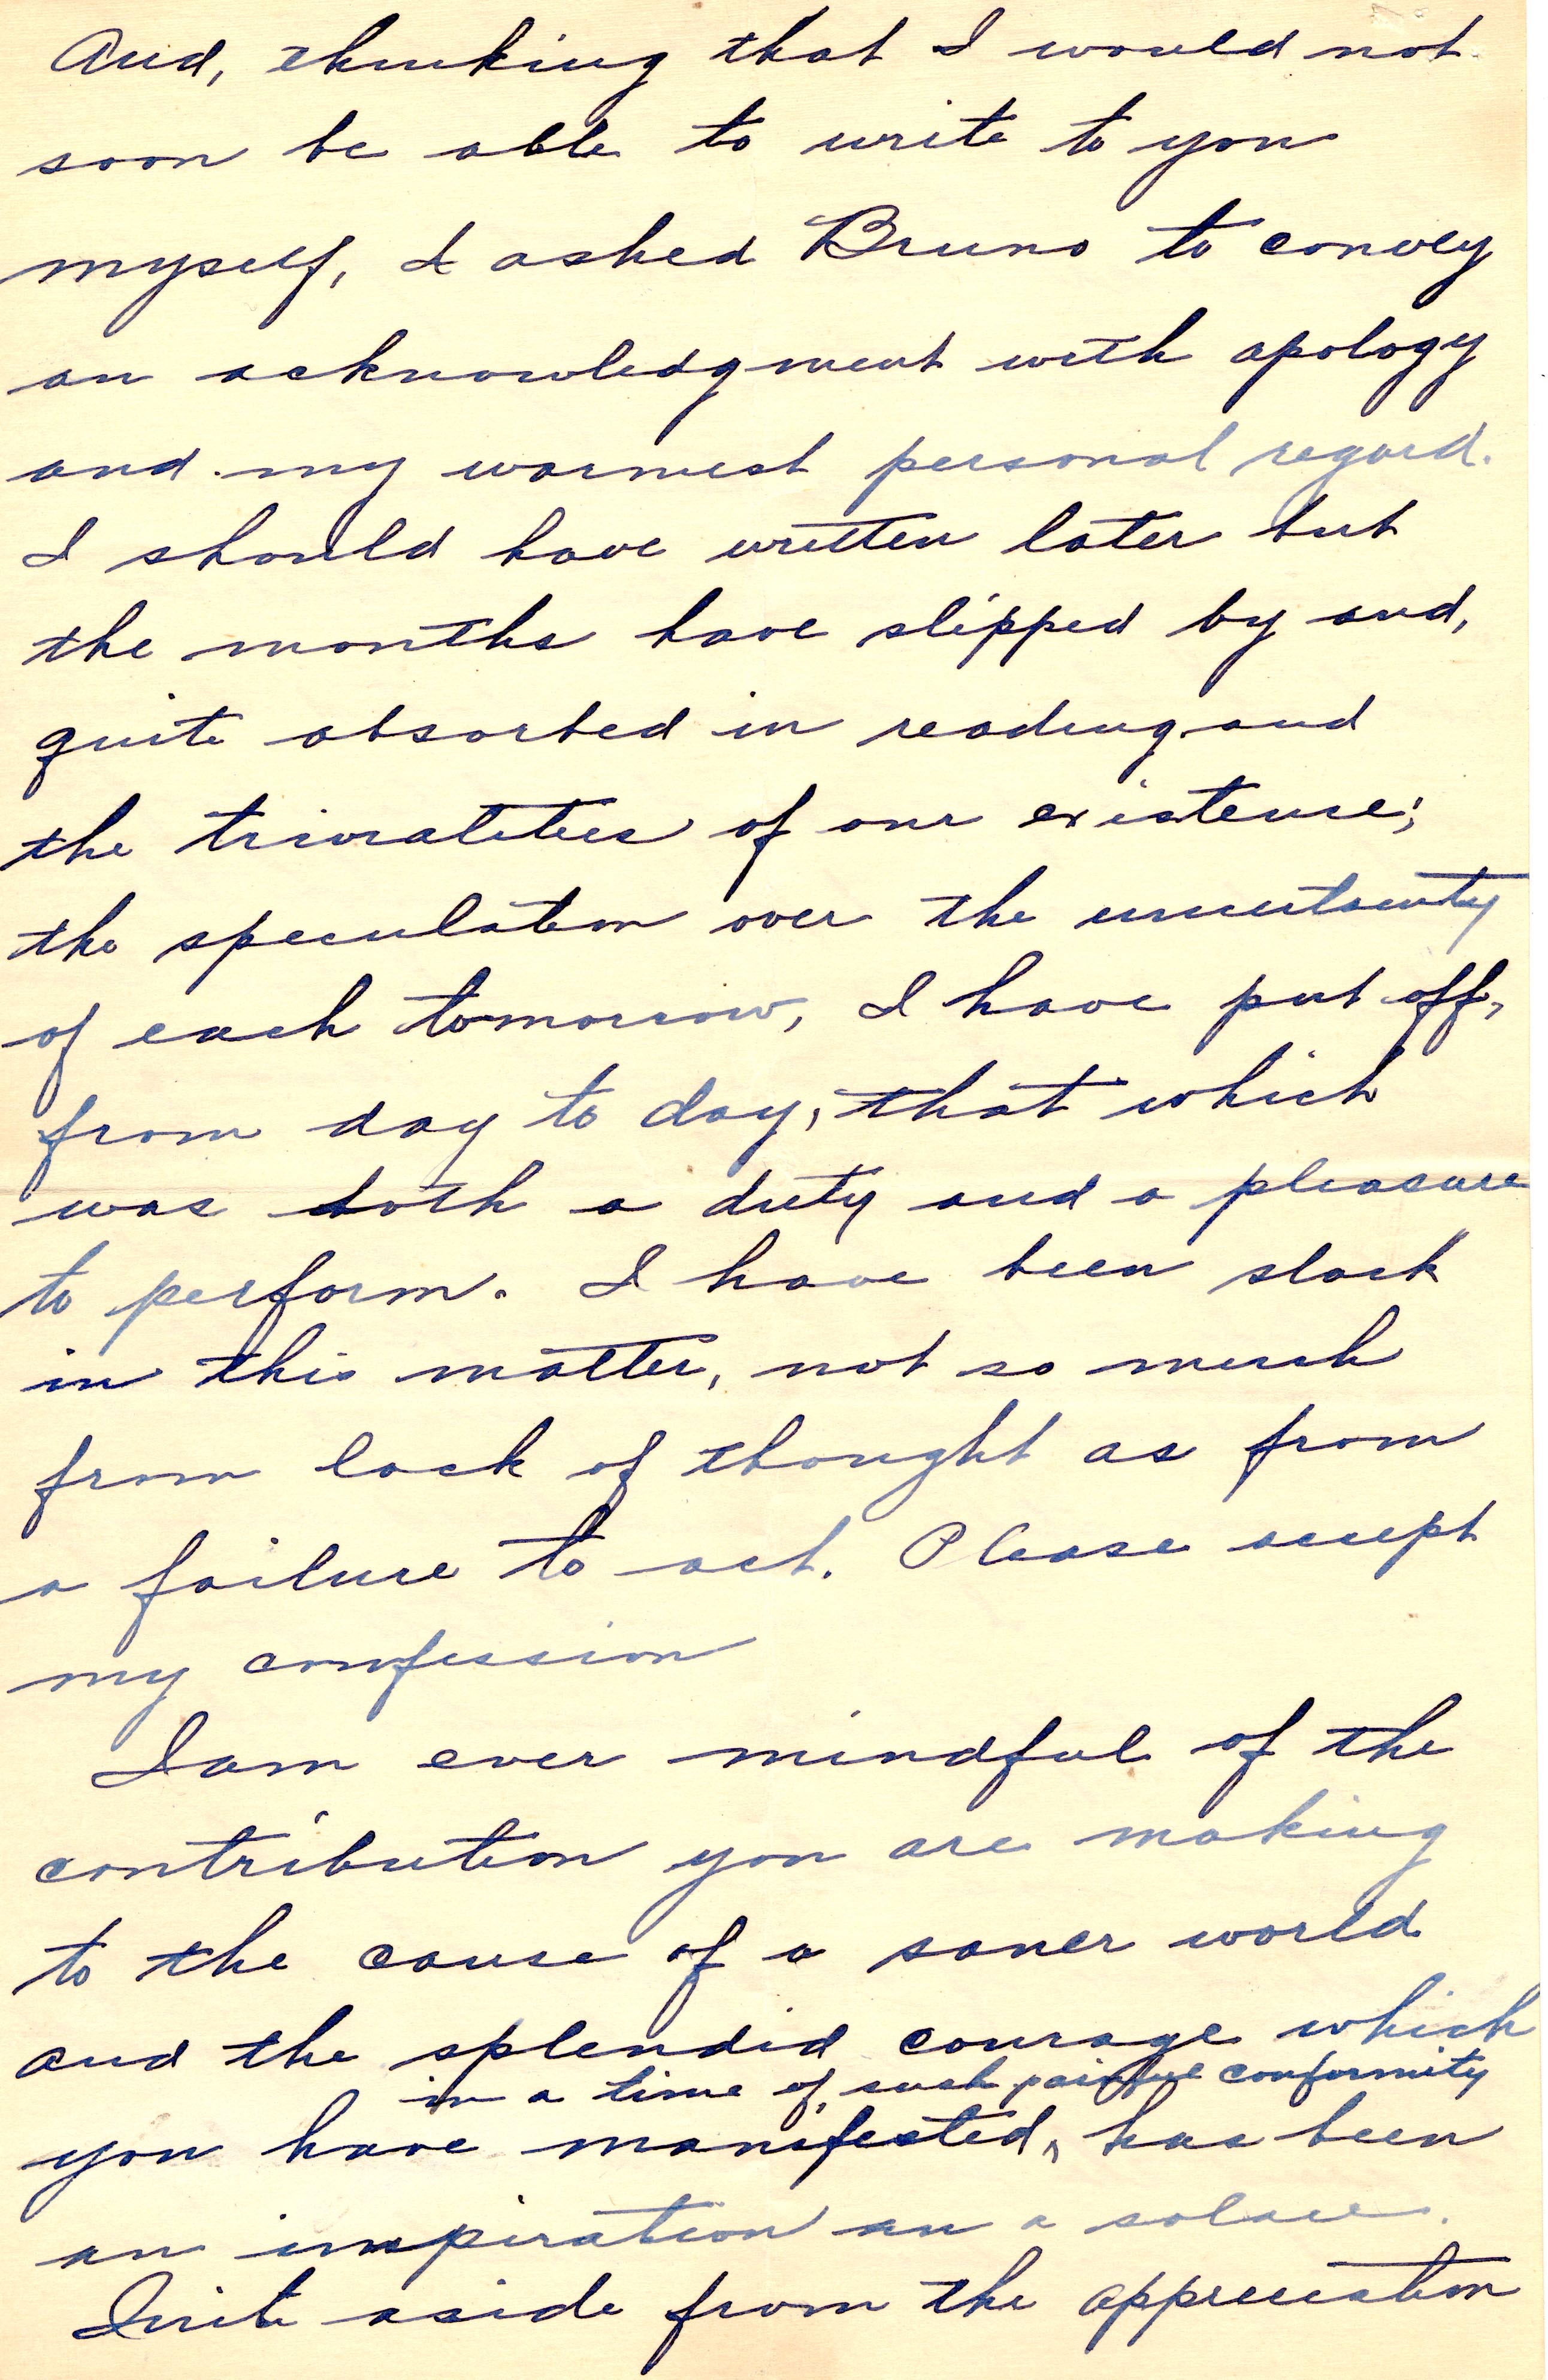 And, thinking that I would not
soon be able to write to you
myself, I asked Bruno to convey
an acknowledgment with apology
and my warmest personal regard.
I should have written later but
the months have slipped by and,
quite absorbed in reading and
the trivialities of our existence;
the speculation over the uncertainty
of each tomorrow, I have put off,
from day to day, that which
was both a duty and a pleasure
to perform. I have been slack
in this matter, not so much
from lack of thought as from
a failure to act. Please accept
my confession
I am ever mindful of the
contribution you are making
to the cause of a saner world
and the splendid courage which
in a time of such painful conformity
you have manifested, has been
an inspiration an a solace.
Quite aside from the appreciation